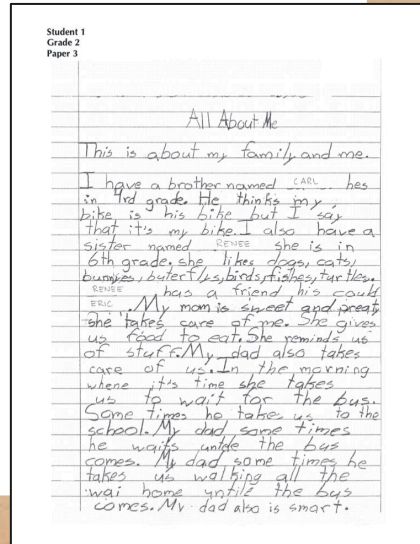 Student 1
Grade 2
Paper 3
All About Me
This is about my family and me.
I have a brother named CARL hes
in 4rd grade. He thinks my
bike is his bike but I say
that it's my bike. I also have a
sister named RENEE she is in
6th grade. she likes dogs, cats,
bunnyes, buterflys, birds, fishes, turtles.
RENEE has a friend his could
ERIC. My mom is sweet and preaty
she takes care of me. She gives
us food to eat. She reminds us
of stuff. My dad also takes
care of us. In the morning
whene it's time she takes
us to wait for the bus.
Some times he takes us to the
school. My dad some times
he waits untile the bus
comes. My dad some times he
takes us walking all the
wai home untile the bus
comes. My dad also is smart.